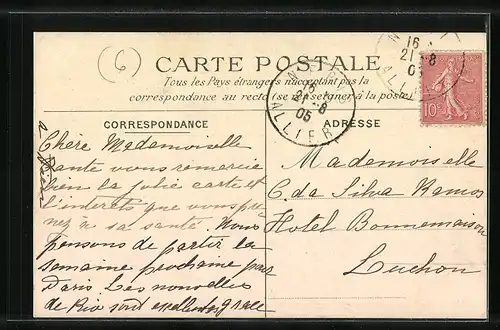 6
CARTE POSTALE
Tous les Pays étrangers n'acceptant pas la
correspondance au recto (se renseigner à la poste)
CORRESPONDANCE
ADRESSE
16
21 -8
05
ALLIER
16
21 -8
05
ALLIER
10c
Chère Mademoiselle
tante vous remercie
bien la jolie carte et
l'interêt que vous pre
nez à sa santé. Nous
pensons de partir la
semaine prochaine pour
Paris Les nouvelles
de Rio sont excellentes grâce
à Dieu
Mademoiselle
C. da Silva Ramos
Hotel Bonnemaison
Luchon